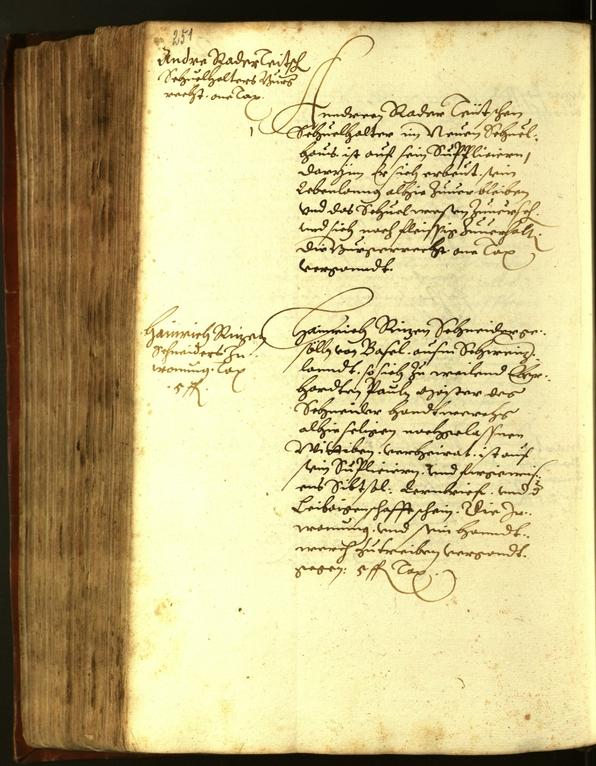 251
Andre Rader Teitsch
Schuelhalters Burg
recht. one Tax.
Andreen Rader Teütschen
Schuelhalter im Neuen Schuel-
haus. ist auf sein Suppliciern,
darinn Er sich erbeut, sein
Lebenlanng alhie zuuerbleiben
vnd das Schuelwesen
vnd sich noch fleissig zuuerhalt.
die Burgerrecht. one Tax
vergonndt.
Hainrich Rinzen
Schneiders In-
wonung. Tax
5 fl
Hainrich Rinzen Schneider ge-
sölln von Basel. ausm Schweitz.
lanndt. so sich zu weilend Eber-
hardten Pauln Maister des
Schneider Handtwerchs
alhie seligen nachgelassnen
Wittiben. verheirat. ist auf
sein Supliciern. vnd furgewis-
ens Lernbrief. vnd
Leibaigenschafft schein. Die In-
wonung. vnd sein Hanndt-
werch zutreiben vergondt.
gegen: 5 fl Tax.